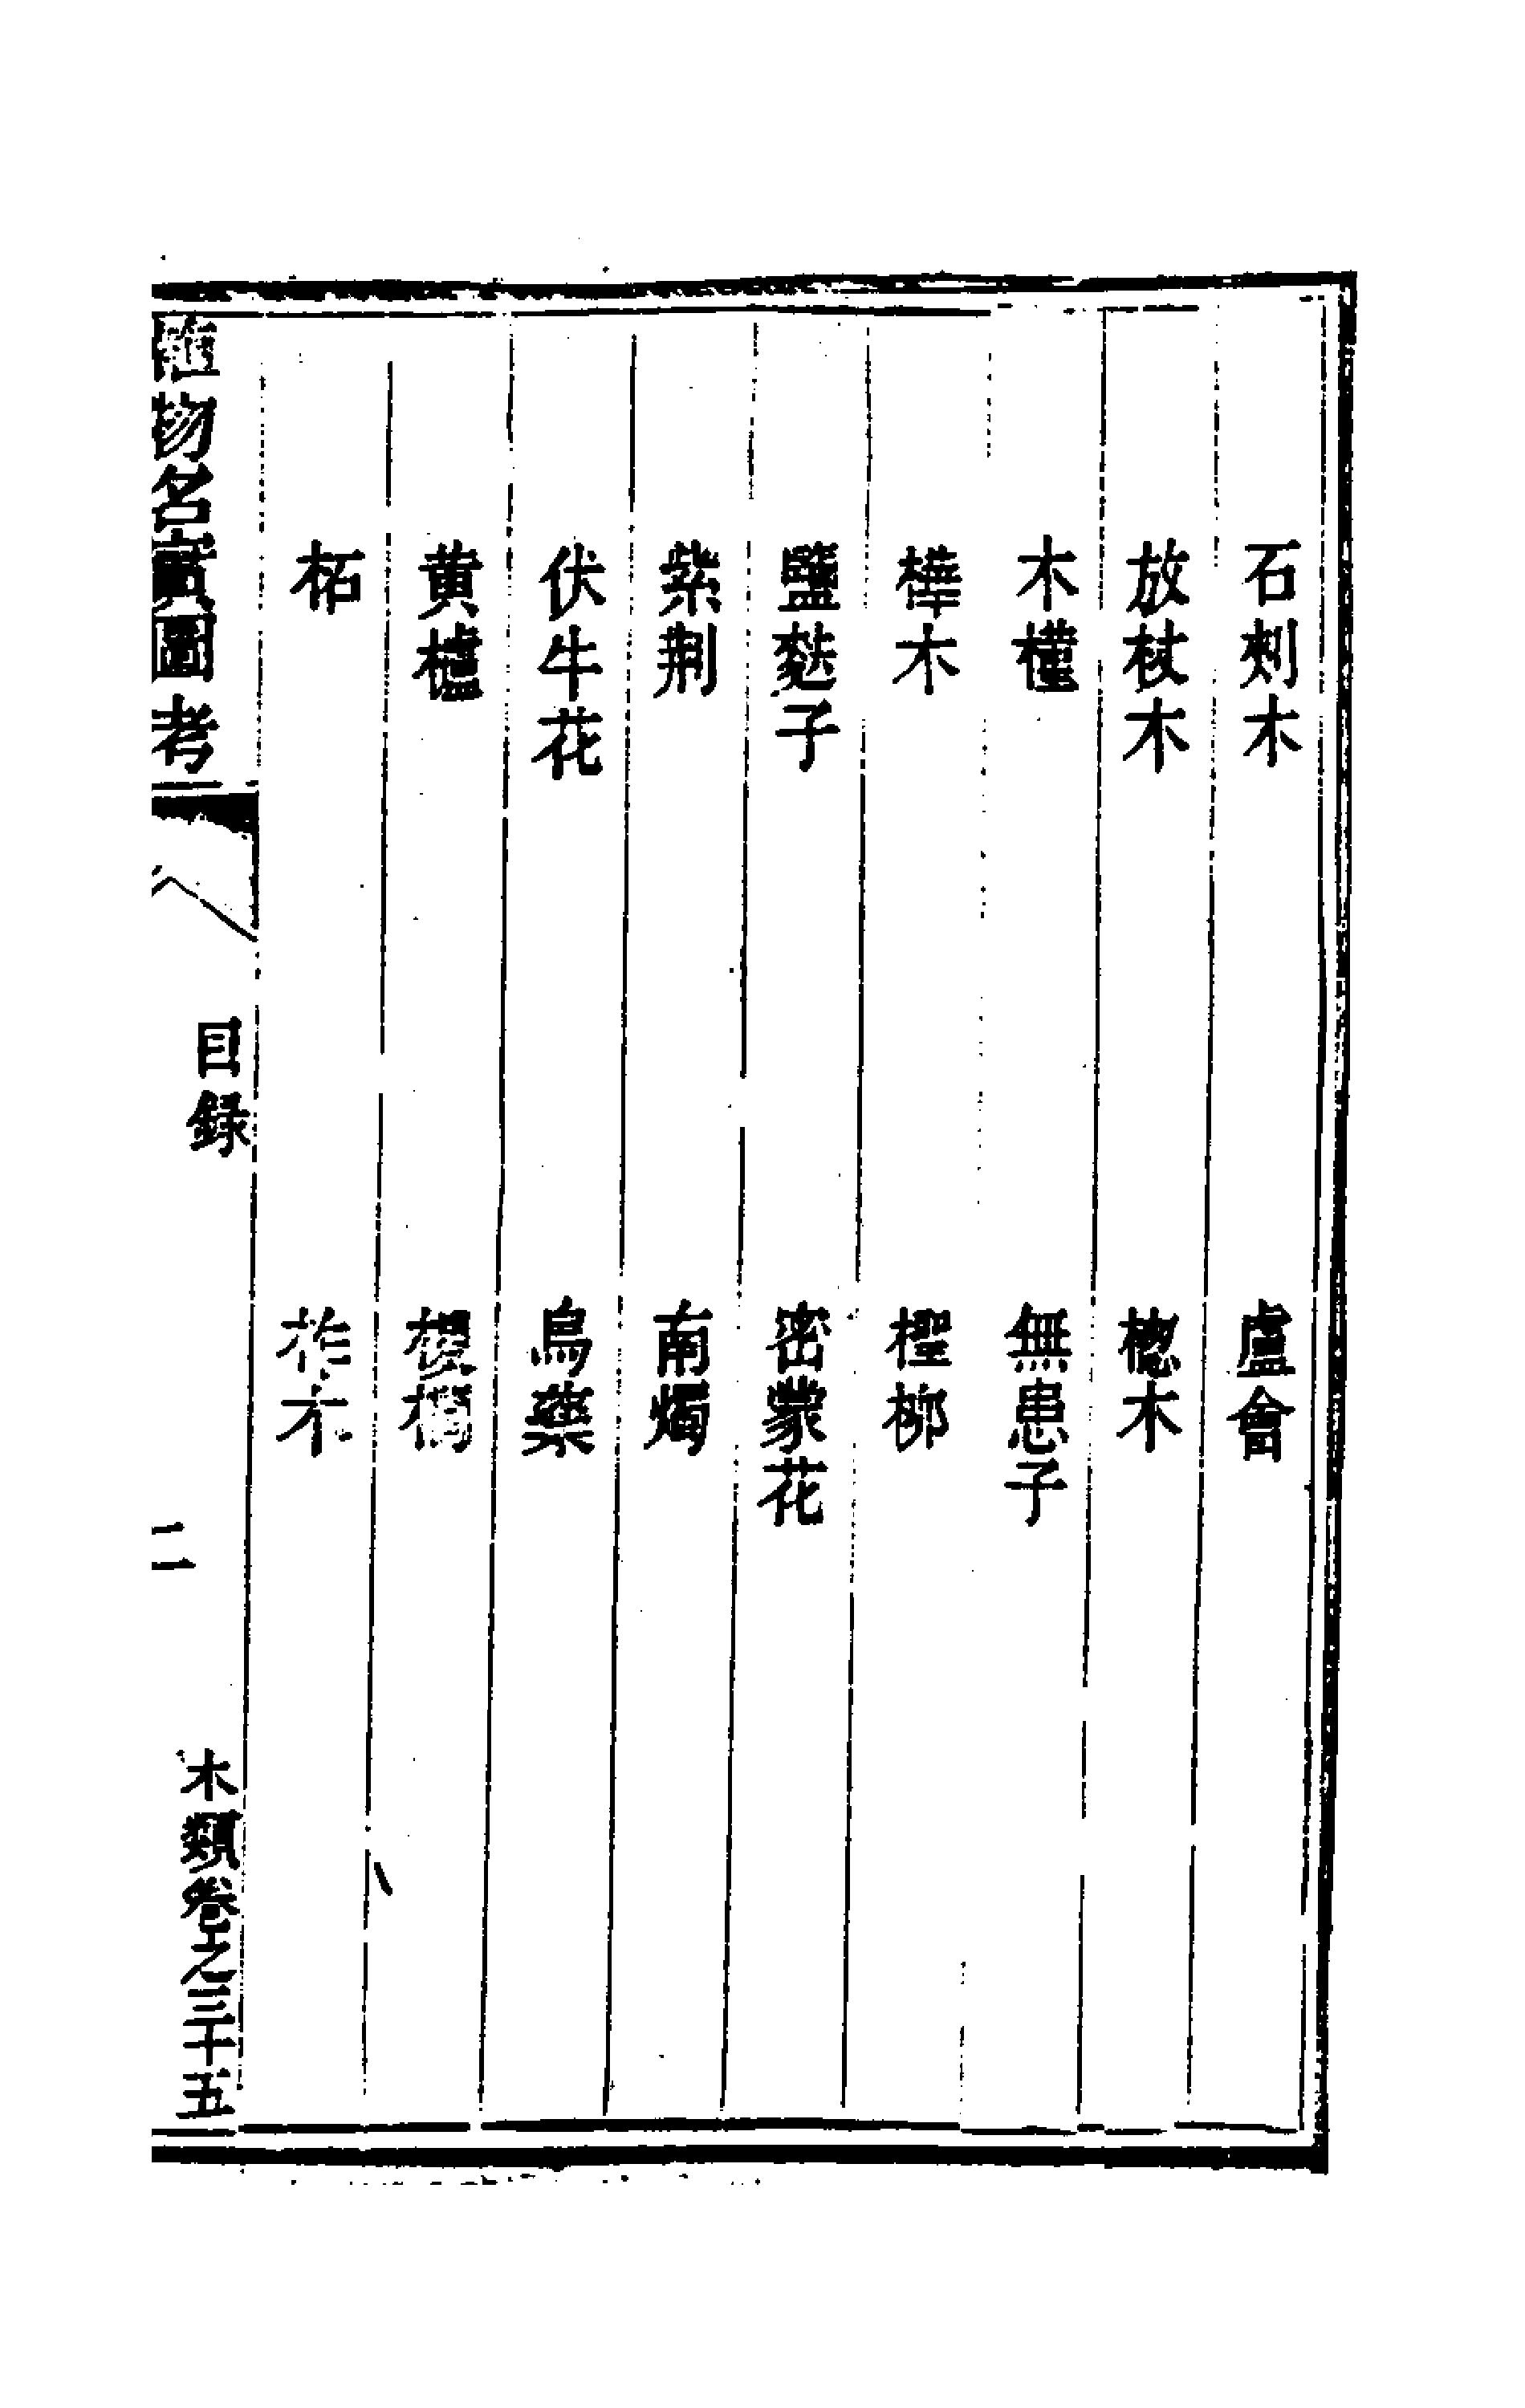 石刺木 盧會
放杖木 楤木
木槿 無患子
樺木 檉柳
鹽麩子 密蒙花
紫荆 南燭
伏牛花 烏藥
黄櫨 椶櫚
柘 柞木
植物名實圖考 目録 二 木類卷之三十五